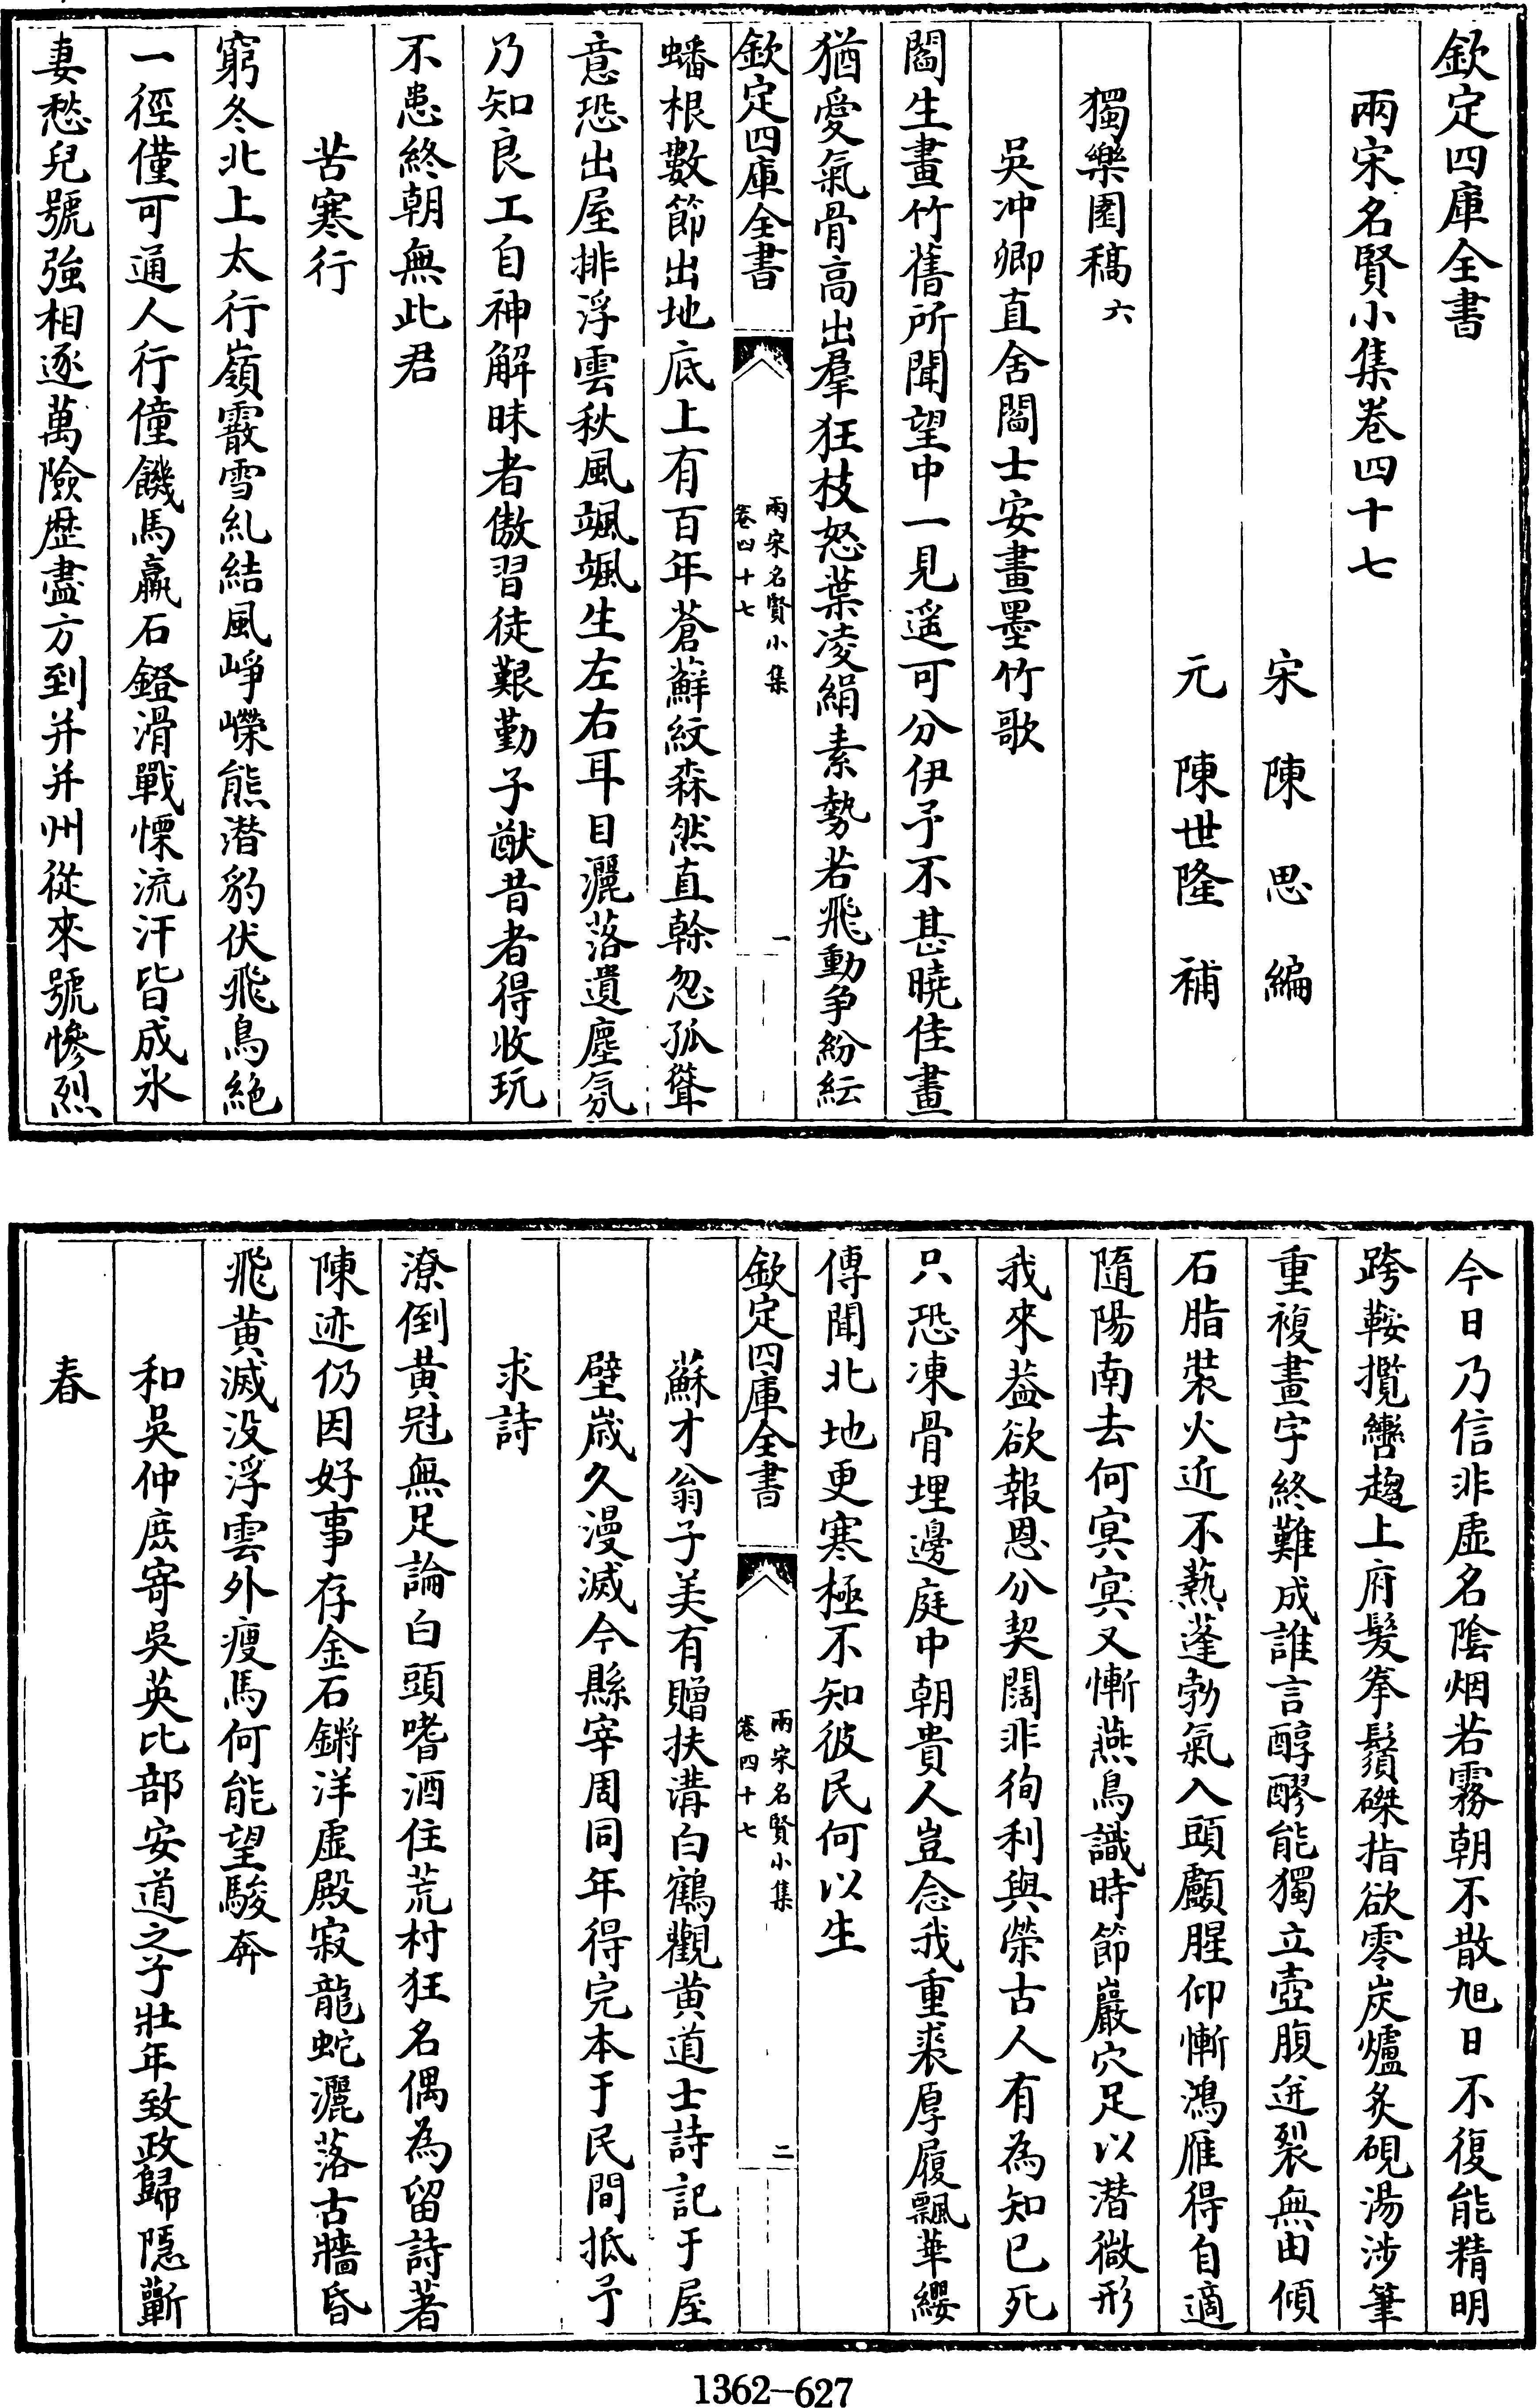 欽定四庫全書
兩宋名賢小集卷四十七
宋　陳　思　編
元　陳世隆　補
獨樂園稿六
吳冲卿直舍閻士安畫墨竹歌
閻生畫竹舊所聞望中一見遥可分伊予不甚曉佳畫
猶愛氣骨高出羣狂枝怒葉凌絹素勢若飛動争紛紜
欽定四庫全書
兩宋名賢小集
卷四十七
一
蟠根數節出地底上有百年蒼蘚紋森然直榦忽孤聳
意恐出屋排浮雲秋風颯颯生左右耳目灑落遺塵氛
乃知良工自神解昧者傲習徒艱勤子猷昔者得收玩
不患終朝無此君
苦寒行
窮冬北上太行嶺霰雪糺結風崢嶸熊潜豹伏飛鳥絶
一徑僅可通人行僮饑馬羸石鐙滑戰慄流汗皆成氷
妻愁兒號強相逐萬險歴盡方到并并州從來號慘烈
今日乃信非虛名陰烟若霧朝不散旭日不復能精明
跨鞍攬轡趨上府髮拳鬚磔指欲零炭爐炙硯湯涉筆
重複畫字終難成誰言醇醪能獨立壺腹迸裂無由傾
石脂裝火近不熱蓬勃氣入頭顱腥仰慚鴻雁得自適
隨陽南去何㝠㝠又慚燕鳥識時節巖穴足以潜微形
我來葢欲報恩分契闊非徇利與榮古人有為知已死
只恐凍骨埋邊庭中朝貴人豈念我重裘厚履飄華纓
傳聞北地更寒極不知彼民何以生
欽定四庫全書
兩宋名賢小集
卷四十七
二
蘇才翁子美有贈扶溝白鶴觀黄道士詩記于屋
壁歲久漫滅今縣宰周同年得完本于民間抵予
求詩
潦倒黄冠無足論白頭嗜酒住荒村狂名偶為留詩著
陳迹仍因好事存金石鏘洋虛殿寂龍蛇灑落古牆昏
飛黄滅没浮雲外瘦馬何能望駿奔
和吳仲庶寄吳英比部安道之子壯年致政歸隱蘄
春
1362—627